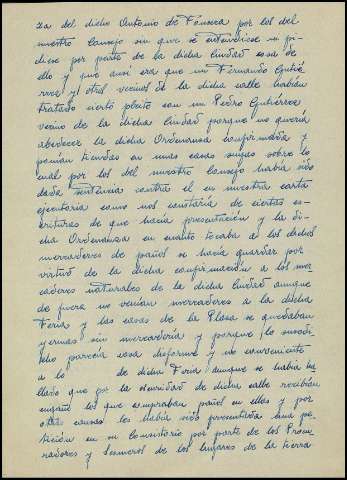 za del dicho Antonio de Fonseca por los del
nuestro Consejo sin que se entendiese ni pi-
diese por parte de la dicha Ciudad cosa de
ello y que ansi era que un Fernando Gutié
rrez y otros vecinos de la dicha calle habían
tratado cierto pleito con un Pedro Gutiérrez
vecino de la dicha Ciudad porque no quería
obedecer la dicha Ordenanza confirmada y
ponían tiendas en unas casas suyas sobre lo
cual por los del nuestro Consejo había sido
dada sentencia contra él en nuestra carta
ejecutoria como nos constaría de ciertas es-
crituras de que hacía presentación y la di-
cha Ordenanza en cuanto tocaba a los dichos
mercaderes de paños se hacía guardar por
virtud de la dicha confirmación a los mer
caderes naturales de la dicha Ciudad aunque
de fuera no venían mercaderes a la dicha
Feria y las casas de la Plaza se quedaban
yermas sin mercadería y porque lo suso di
cho parecía cosa disforme y no conveniente
a lo de dicha Feria aunque se había ha
llado que por la oscuridad de dicha calle recibían
engaño los que compraban paños en ellas y por
otras causas les había sido presentada una pe-
tición en su Consistorio por parte de los Procu
radores y Sesmeros de los lugares de la tierra